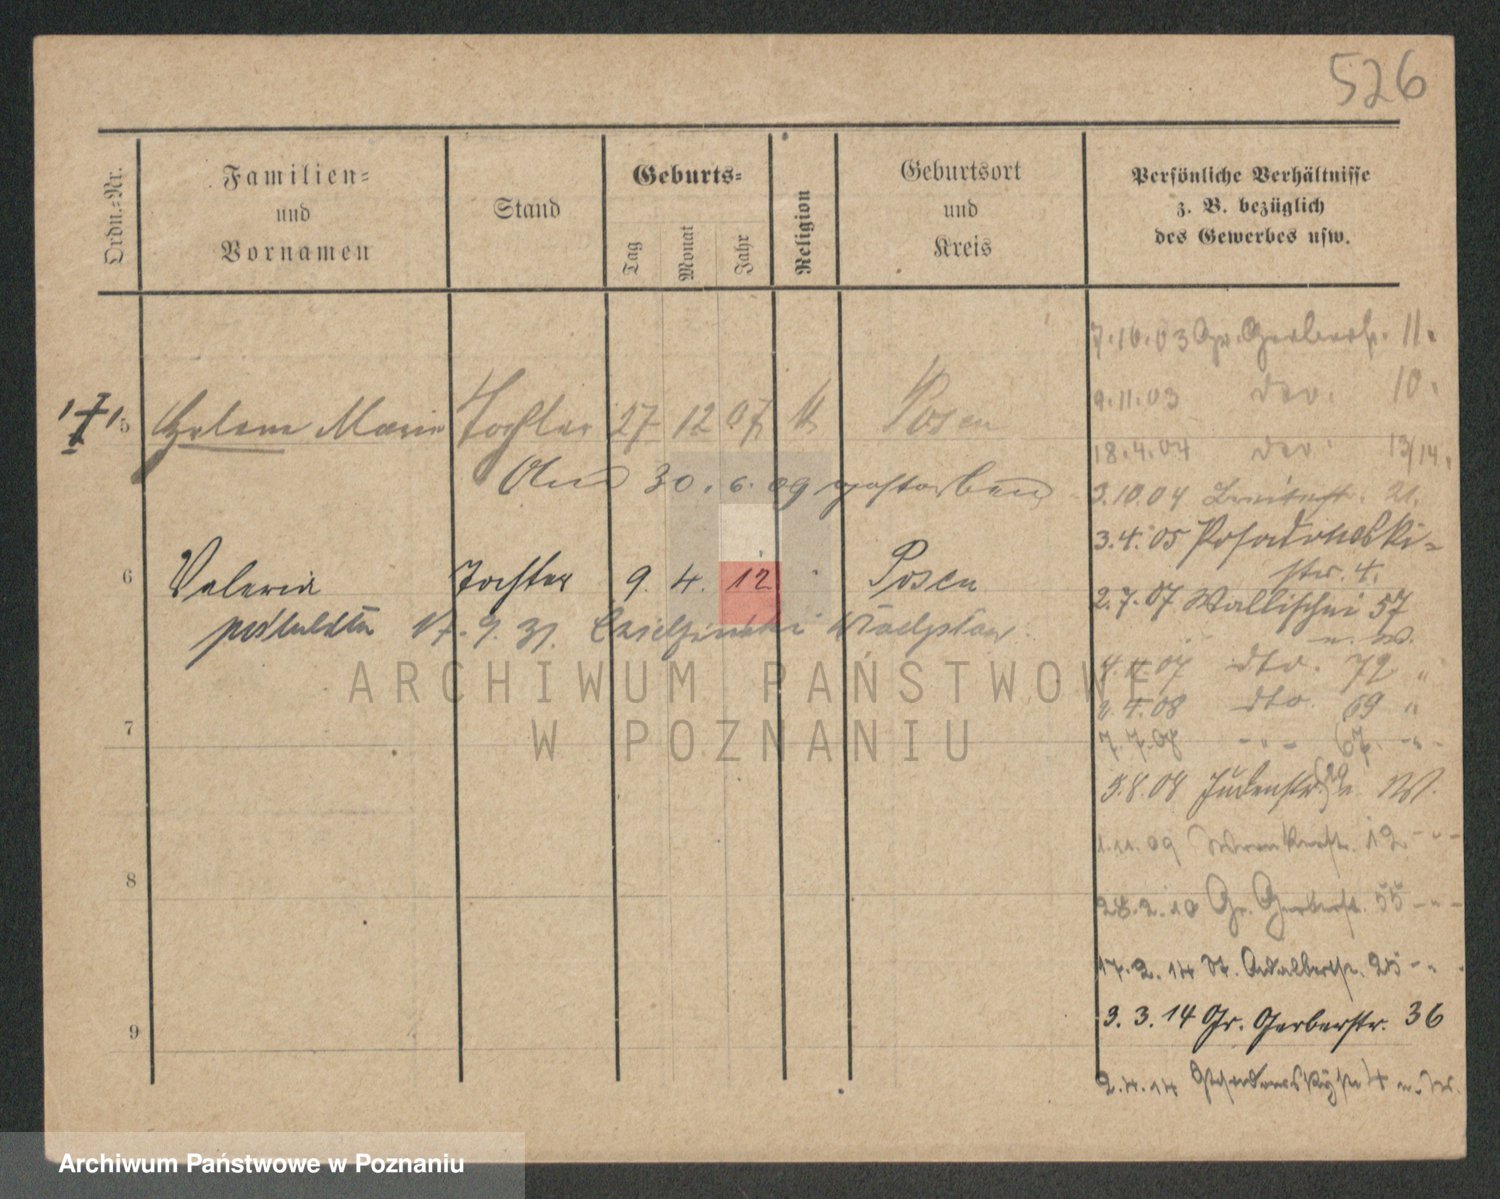 526
Ordn.=Nr.
Familien=
und
Vornamen
Stand
Geburts=
Tag
Monat
Jahr
Religion
Geburtsort
und
Kreis
Persönliche Verhältnisse
z. B. bezüglich
des Gewerbes usw.
7.10.03 Gr. Gerberstr. 11.
9.11.03 10.
18.4.04 13/14.
3.10.04 21.
3.4.05 Posadowski-
str. 4.
2.7.07 Wallischei 57
07 dto. 72 "
08 dto. 69 "
7.7.08 - " - 67. - " -
5.8.08 Judenstr. W.
1.11.09 12 - " -
28.2.10 Gr. Gerberstr. 55 - " -
17.2.14 St. Adalbertstr. 25 - " -
3.3.14 Gr. Gerberstr. 36
2.4.14
5 Marie Tochter 27 12 07 k Posen
30. 6. 09 gestorben
6 Valeria Tochter 9. 4. 12 Posen
17. 9. 31
7
8
9
ARCHIWUM PAŃSTWOWE
W POZNANIU
Archiwum Państwowe w Poznaniu